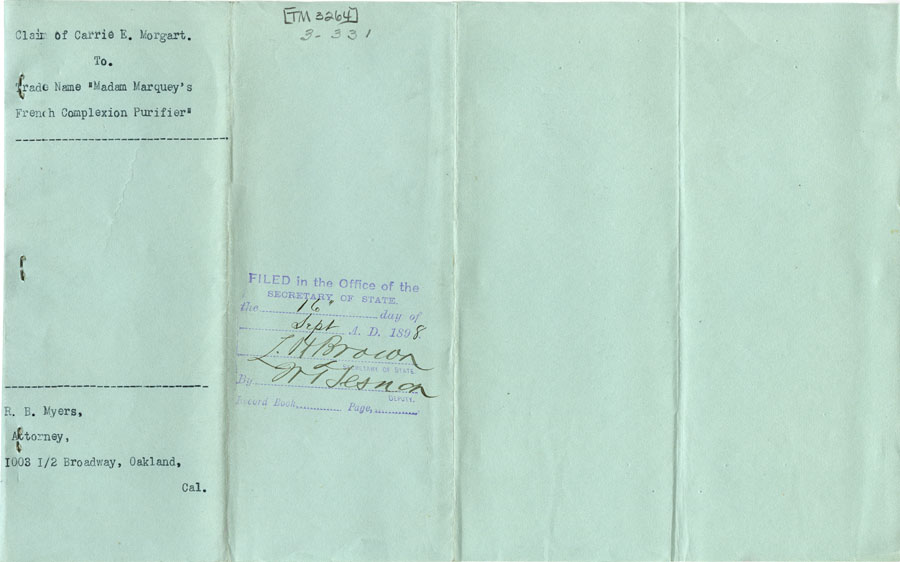 Claim of Carrie E. Morgart.
To.
Trade Name "Madam Marquey's
French Complexion Purifier"
R. B. Myers,
Attorney,
1003 1/2 Broadway, Oakland,
Cal.
[TM 3264]
3-331
FILED in the Office of the
SECRETARY OF STATE.
the 16" day of
Sept A. D. 1898.
L. H. Brown
SECRETARY OF STATE
By
DEPUTY.
Record Book, Page,